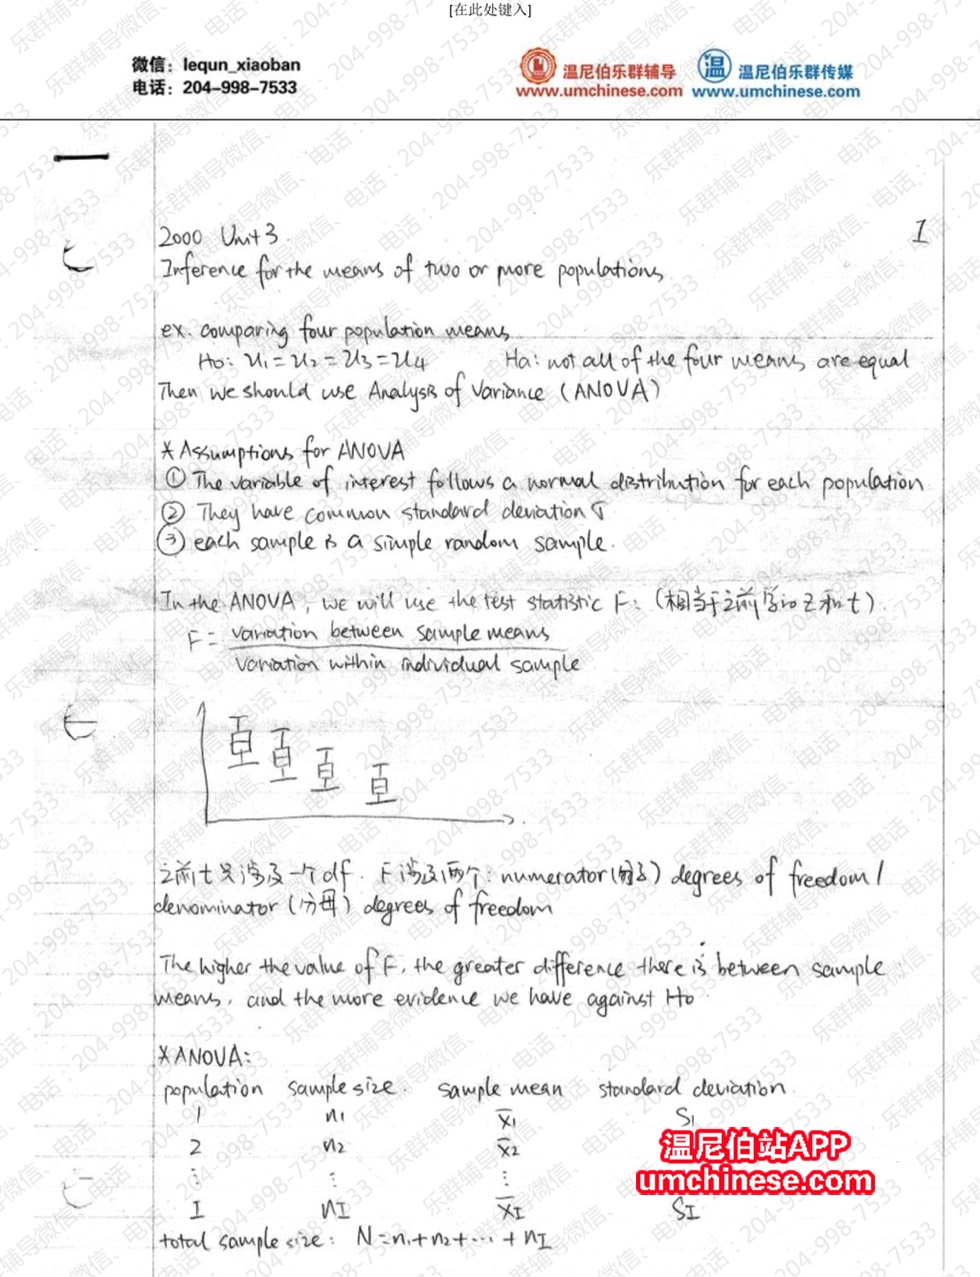 [在此处键入]
微信：lequn_xiaoban
电话：204-998-7533
温尼伯乐群辅导
www.umchinese.com
温尼伯乐群传媒
www.umchinese.com
1
2000 Unit 3
Inference for the means of two or more populations
ex. comparing four population means
Ho: u1 = u2 = u3 = u4 Ha: not all of the four means are equal
Then we should use Analysis of Variance (ANOVA)
* Assumptions for ANOVA
① The variable of interest follows a normal distribution for each population
② They have common standard deviation σ
③ each sample is a simple random sample.
In the ANOVA, we will use the test statistic F: (相当于之前学的 z 和 t).
F = variation between sample means
variation within individual sample
之前 t 只涉及一个 df. F 涉及两个: numerator (分子) degrees of freedom /
denominator (分母) degrees of freedom
The higher the value of F, the greater difference there is between sample
means, and the more evidence we have against Ho
* ANOVA:
population sample size. sample mean standard deviation.
1 n1 x̄1 S1
2 n2 x̄2
⋮ ⋮ ⋮
I nI x̄I SI
total sample size: N = n1 + n2 + ... + nI
温尼伯站APP
umchinese.com
乐群辅导微信、电话：204-998-7533